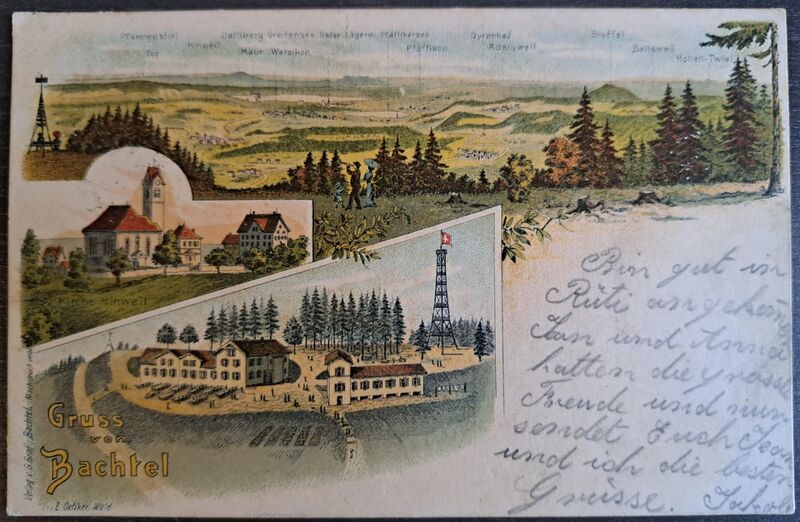 Pfannenstiel Jollberg Greifensee Uster Lägern Pfäffikersee Gyrenbad Stoffel
Egg Hinweil Maur Wetzikon Pfäffikon Adetsweil Betsweil Hohen-Twiel
Kirche Hinweil
Gruss
vom
Bachtel
Verlag v. G. Graf, Bachtel,
E. Oetiker, Wald
Bin gut in
Rüti angekomm
Jean und Anna
hatten die grösste
Freude und nun
sendet Euch Jean
und ich die besten
Grüsse.